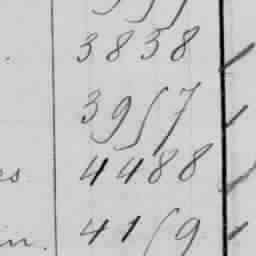 3838
3957
es 4488
in. 4159